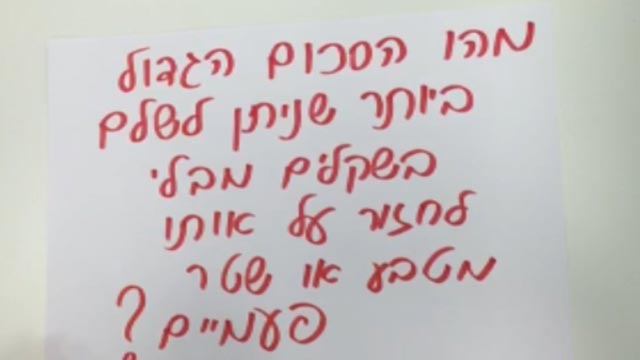 מהו הסכום הגדול
ביותר שניתן לשלם
בשקלים מבלי
לחזור על אותו
מטבע או שטר
פעמיים?